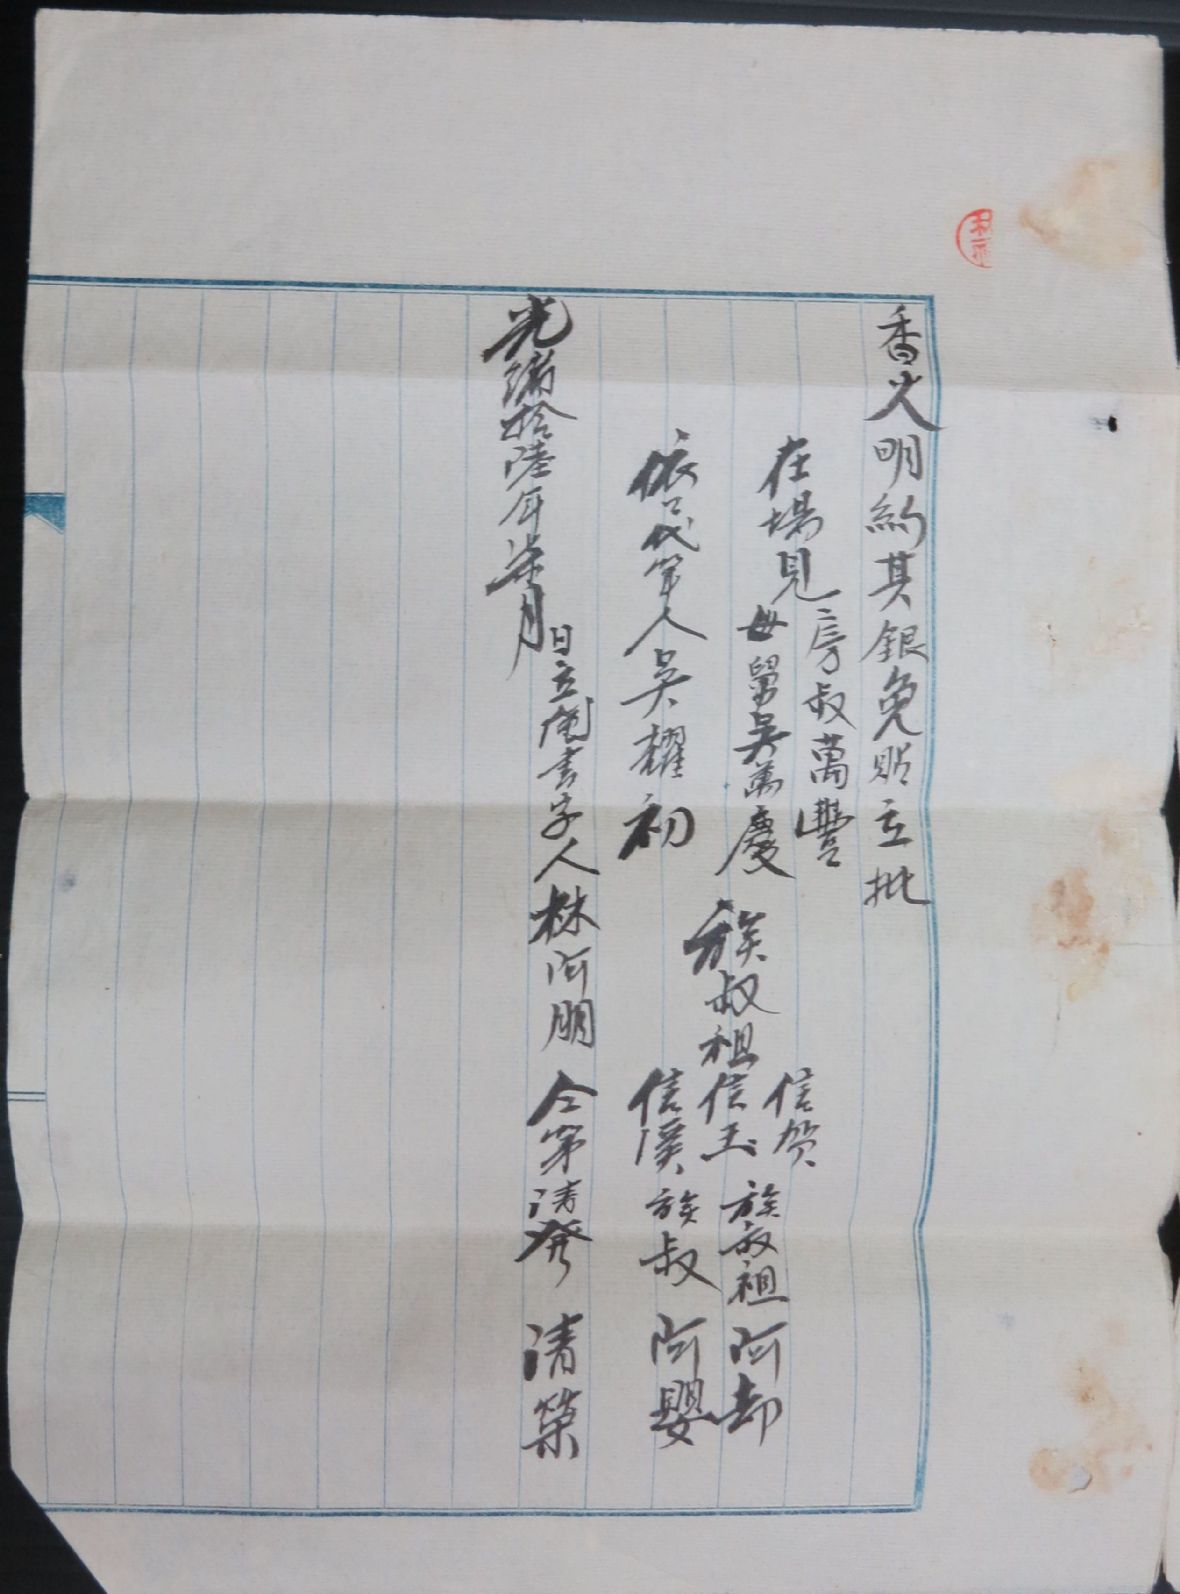 香火明約其銀免貼立批
在場見房叔萬豐
母舅吳萬慶
族叔祖
信賀
信玉
信漢
族叔祖阿却
族叔阿嬰
依口代筆人吳耀初
光緒拾陸年柒月
日立
書字人林阿朋
仝弟清發
清榮